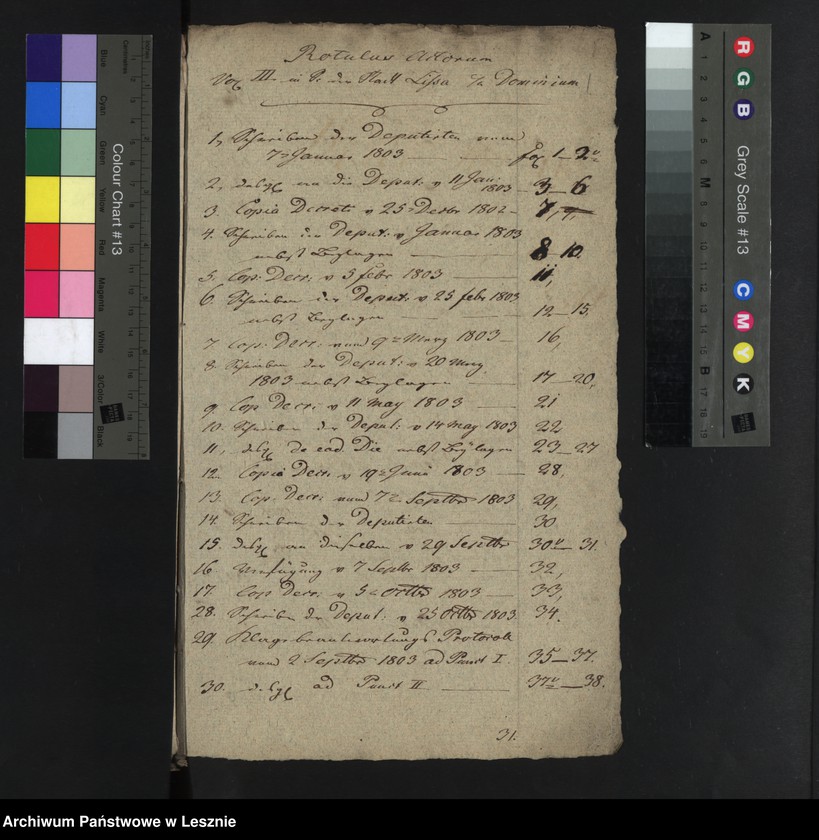 Rotulus Actorum
Vol III. in S. der Stadt Lissa Dominium
1, Schreiben der Deputirten vom
7n Januar 1803 fol 1—2v
2, desgl an die Deput. v 11 Jan: 1803 3—6
3. Copia Decreti v 25n Decbr 1802 7,
4. Schreiben der Deput: v Januar 1803
nebst Beylagen 8—10.
5. Cop. Decr: v 3 febr 1803 11,
6. Schreiben der Deput: v 25 febr 1803
nebst Beylagen 12—15.
7. Cop. Decr: vom 9n Merz 1803 16,
8. Schreiben der Deput: v 20 Merz
1803 nebst Beylagen 17—20,
9. Cop Decr: v 11 May 1803 21
10. Schreiben der Deput: v 14 May 1803 22
11, desgl de eod. Die nebst Beylagen 23—27
12. Copia Decr: v 19n Juni 1803 28,
13. Cop. Decr: vom 7n Septbr 1803 29,
14. Schreiben der Deputirten 30.
15. desgl an dieselben v 29 Septbr 30v—31.
16 Verfügung v 7 Septbr 1803 32,
17. Cop Decr: v 5n Octbr 1803 33,
28. Schreiben der Deput: v 25 Octbr 1803 34.
29. Klagebeantwortungs Protocoll
vom 2 Septbr 1803 ad Punct I. 35—37.
30. desgl ad Punct II 37v—38.
31.
Colour Chart #13
Centimetres
Inches
Blue
Cyan
Green
Yellow
Red
Magenta
White
3/Color
Black
Grey Scale #13
R
G
B
C
M
Y
K
A
1
2
3
4
5
6
M
8
9
10
11
12
13
14
15
B
17
18
19
Archiwum Państwowe w Lesznie